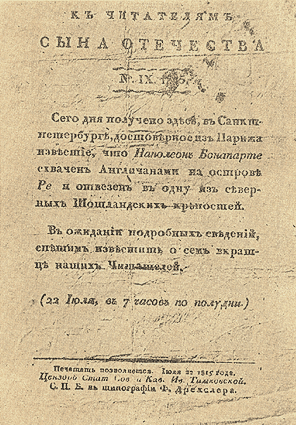 КЪ ЧИТАТЕЛЯМЪ
СЫНА ОТЕЧЕСТВА
No. IX.
Сего дня получено здѣсь, въ Санкт-
петербургѣ, достовѣрное изъ Парижа
извѣстіе, что Наполеонъ Бонапарте
схваченъ Англичанами на островѣ
Ре и отвезенъ въ одну изъ сѣвер-
ныхъ Шотландскихъ крѣпостей.
Въ ожиданіи подробныхъ свѣденій,
спѣшимъ извѣстить о семъ вкрат-
цѣ нашихъ Читателей.
(22 Іюля, въ 7 часовъ по полудни.)
Печатать позволяется. Іюля 22 1815 года.
Цензоръ Стат. Сов. и Кав. Ив. Тимковской.
С. П. Б. въ типографіи Ф. Дрехслера.